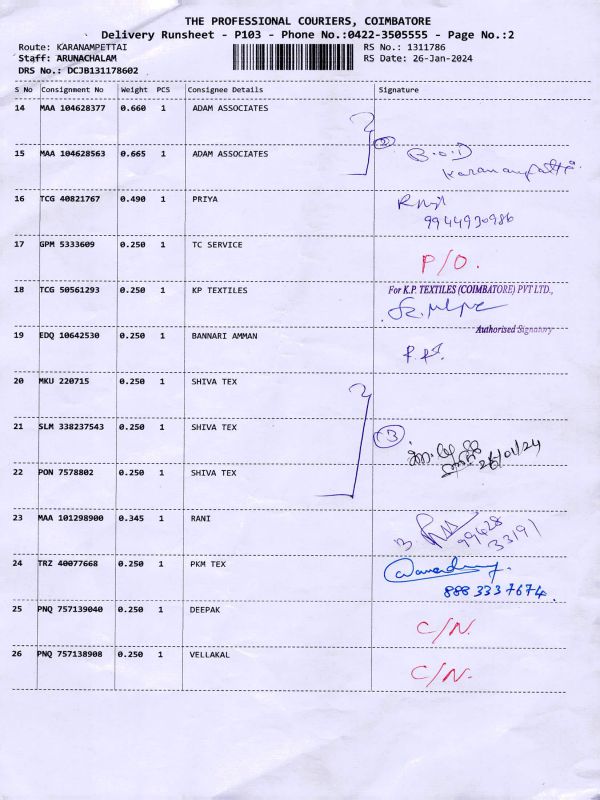 THE PROFESSIONAL COURIERS, COIMBATORE
Delivery Runsheet - P103 - Phone No.:0422-3505555 - Page No.:2
Route: KARANAMPETTAI RS No.: 1311786
Staff: ARUNACHALAM RS Date: 26-Jan-2024
DRS No.: DCJB131178602
S No Consignment No Weight PCS Consignee Details Signature
14 MAA 104628377 0.660 1 ADAM ASSOCIATES
2
15 MAA 104628563 0.665 1 ADAM ASSOCIATES B.O.D
Karanampatti
16 TCG 40821767 0.490 1 PRIYA
9944930986
17 GPM 5333609 0.250 1 TC SERVICE
P/O.
18 TCG 50561293 0.250 1 KP TEXTILES For K.P. TEXTILES (COIMBATORE) PVT LTD.,
Authorised Signatory
19 EDQ 10642530 0.250 1 BANNARI AMMAN
20 MKU 220715 0.250 1 SHIVA TEX
21 SLM 338237543 0.250 1 SHIVA TEX 3
26/01/24
22 PON 7578802 0.250 1 SHIVA TEX
23 MAA 101298900 0.345 1 RANI
99428
33191
24 TRZ 40077668 0.250 1 PKM TEX
888 333 7674.
25 PNQ 757139040 0.250 1 DEEPAK
C/N.
26 PNQ 757138908 0.250 1 VELLAKAL
C/N.